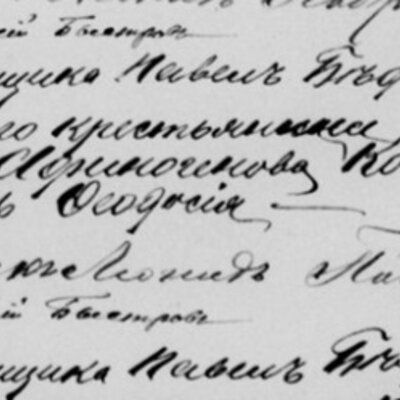 ей Быстровъ
щика Павелъ Бѣд
го крестьянина
Афиногенова Ко
ъ Ѳеодосія
Леонидъ Па
ей Быстровъ
щика Павелъ Бѣ